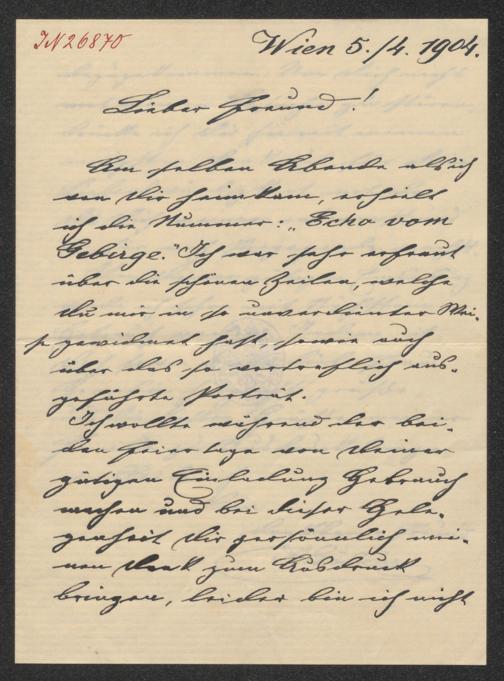 IN 26870
Wien 5./4. 1904.
Lieber Freund!
Am selben Abende als ich
von dir heimkam, erhielt
ich die Nummer: „Echo vom
Gebirge." Ich war sehr erfreut
über die schönen Zeilen, welche
du mir in so unverdienter Wei-
se gewidmet hast, sowie auch
über das so vortrefflich aus-
geführte Porträt.
Ich wollte während der bei-
den Feiertage von deiner
gütigen Einladung Gebrauch
machen und bei dieser Gele-
genheit dir persönlich mei-
nen Dank zum Ausdruck
bringen, leider bin ich nicht